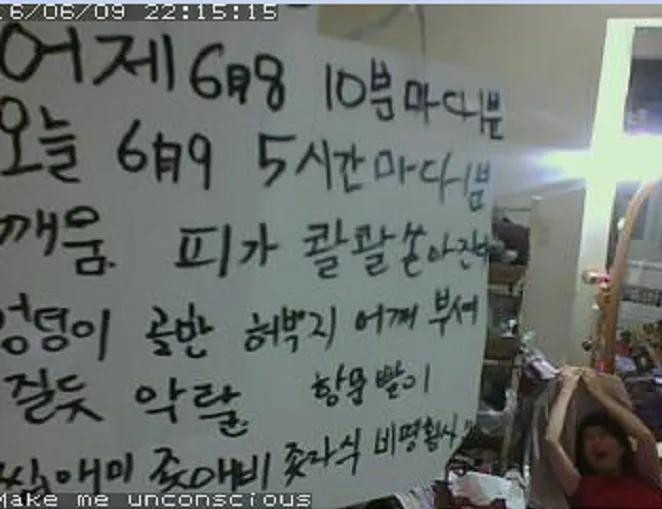 16/06/09 22:15:15
어제 6月8 10분마다
오늘 6月9 5시간마다
깨움. 피가 콸콸 쏟아진다
엉덩이 골반 허벅지 어깨 부셔
질듯 악랄 항문
씹애미 좆애비 좆자식 비명횡사
Make me unconscious